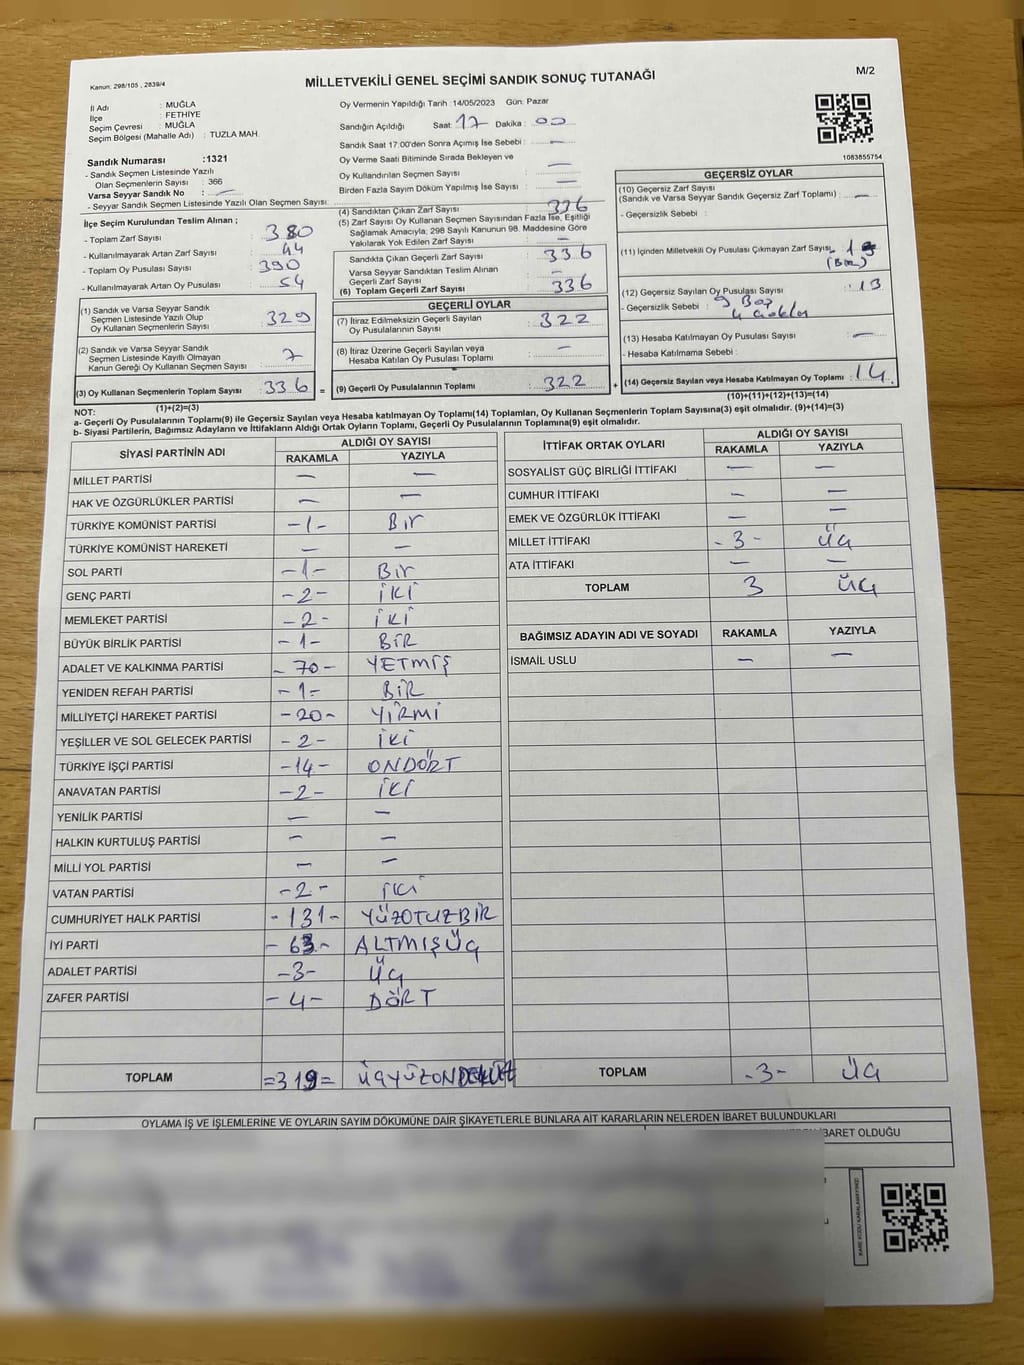 Kanun: 298/105 , 2839/4
MİLLETVEKİLİ GENEL SEÇİMİ SANDIK SONUÇ TUTANAĞI
M/2
İl Adı : MUĞLA
İlçe : FETHİYE
Seçim Çevresi : MUĞLA
Seçim Bölgesi (Mahalle Adı) : TUZLA MAH.
Sandık Numarası :1321
- Sandık Seçmen Listesinde Yazılı
Olan Seçmenlerin Sayısı : 366
Varsa Seyyar Sandık No : —
- Seyyar Sandık Seçmen Listesinde Yazılı Olan Seçmen Sayısı.
Oy Vermenin Yapıldığı Tarih : 14/05/2023 Gün: Pazar
Sandığın Açıldığı Saat: 17 Dakika : 00
Sandık Saat 17:00'den Sonra Açımış İse Sebebi : —
Oy Verme Saati Bitiminde Sırada Bekleyen ve
Oy Kullandırılan Seçmen Sayısı : —
Birden Fazla Sayım Döküm Yapılmış İse Sayısı : —
1083855754
İlçe Seçim Kurulundan Teslim Alınan ;
- Toplam Zarf Sayısı : 380
- Kullanılmayarak Artan Zarf Sayısı : 44
- Toplam Oy Pusulası Sayısı : 390
- Kullanılmayarak Artan Oy Pusulası : 54
(1) Sandık ve Varsa Seyyar Sandık
Seçmen Listesinde Yazılı Olup
Oy Kullanan Seçmenlerin Sayısı : 329
(2) Sandık ve Varsa Seyyar Sandık
Seçmen Listesinde Kayıtlı Olmayan
Kanun Gereği Oy Kullanan Seçmen Sayısı : 7
(3) Oy Kullanan Seçmenlerin Toplam Sayısı : 336 =
(1)+(2)=(3)
(4) Sandıktan Çıkan Zarf Sayısı : 336
(5) Zarf Sayısı Oy Kullanan Seçmen Sayısından Fazla İse, Eşitliği
Sağlamak Amacıyla, 298 Sayılı Kanunun 98. Maddesine Göre
Yakılarak Yok Edilen Zarf Sayısı : —
Sandıkta Çıkan Geçerli Zarf Sayısı : 336
Varsa Seyyar Sandıktan Teslim Alınan
Geçerli Zarf Sayısı : —
(6) Toplam Geçerli Zarf Sayısı : 336
GEÇERLİ OYLAR
(7) İtiraz Edilmeksizin Geçerli Sayılan
Oy Pusulalarının Sayısı : 322
(8) İtiraz Üzerine Geçerli Sayılan veya
Hesaba Katılan Oy Pusulası Toplamı : —
(9) Geçerli Oy Pusulalarının Toplamı : 322 +
GEÇERSİZ OYLAR
(10) Geçersiz Zarf Sayısı
(Sandık ve Varsa Seyyar Sandık Geçersiz Zarf Toplamı) : —
- Geçersizlik Sebebi :
(11) İçinden Milletvekili Oy Pusulası Çıkmayan Zarf Sayısı : 1
(Bir)
(12) Geçersiz Sayılan Oy Pusulası Sayısı : 13
- Geçersizlik Sebebi : 9 Boş
(13) Hesaba Katılmayan Oy Pusulası Sayısı : —
- Hesaba Katılmama Sebebi :
(14) Geçersiz Sayılan veya Hesaba Katılmayan Oy Toplamı : 14
(10)+(11)+(12)+(13)=(14)
NOT:
a- Geçerli Oy Pusulalarının Toplamı(9) ile Geçersiz Sayılan veya Hesaba katılmayan Oy Toplamı(14) Toplamları, Oy Kullanan Seçmenlerin Toplam Sayısına(3) eşit olmalıdır. (9)+(14)=(3)
b- Siyasi Partilerin, Bağımsız Adayların ve İttifakların Aldığı Ortak Oyların Toplamı, Geçerli Oy Pusulalarının Toplamına(9) eşit olmalıdır.
SİYASİ PARTİNİN ADI ALDIĞI OY SAYISI
RAKAMLA YAZIYLA
MİLLET PARTİSİ — —
HAK VE ÖZGÜRLÜKLER PARTİSİ — —
TÜRKİYE KOMÜNİST PARTİSİ -1- Bir
TÜRKİYE KOMÜNİST HAREKETİ — —
SOL PARTİ -1- Bir
GENÇ PARTİ -2- İKİ
MEMLEKET PARTİSİ -2- İKİ
BÜYÜK BİRLİK PARTİSİ -1- BİR
ADALET VE KALKINMA PARTİSİ -70- YETMİŞ
YENİDEN REFAH PARTİSİ -1- BİR
MİLLİYETÇİ HAREKET PARTİSİ -20- YİRMİ
YEŞİLLER VE SOL GELECEK PARTİSİ -2- İKİ
TÜRKİYE İŞÇİ PARTİSİ -14- ONDÖRT
ANAVATAN PARTİSİ -2- İKİ
YENİLİK PARTİSİ — —
HALKIN KURTULUŞ PARTİSİ — —
MİLLİ YOL PARTİSİ — —
VATAN PARTİSİ -2- İKİ
CUMHURİYET HALK PARTİSİ -131- YÜZOTUZBİR
İYİ PARTİ -63- ALTMIŞÜÇ
ADALET PARTİSİ -3- ÜÇ
ZAFER PARTİSİ -4- DÖRT
TOPLAM =319= ÜÇYÜZONDOKUZ
İTTİFAK ORTAK OYLARI ALDIĞI OY SAYISI
RAKAMLA YAZIYLA
SOSYALİST GÜÇ BİRLİĞİ İTTİFAKI — —
CUMHUR İTTİFAKI — —
EMEK VE ÖZGÜRLÜK İTTİFAKI — —
MİLLET İTTİFAKI -3- ÜÇ
ATA İTTİFAKI — —
TOPLAM 3 ÜÇ
BAĞIMSIZ ADAYIN ADI VE SOYADI RAKAMLA YAZIYLA
İSMAİL USLU — —
TOPLAM -3- ÜÇ
OYLAMA İŞ VE İŞLEMLERİNE VE OYLARIN SAYIM DÖKÜMÜNE DAİR ŞİKAYETLERLE BUNLARA AİT KARARLARIN NELERDEN İBARET BULUNDUKLARI
İBARET OLDUĞU
KARE KODU KARALAMAYINIZ!